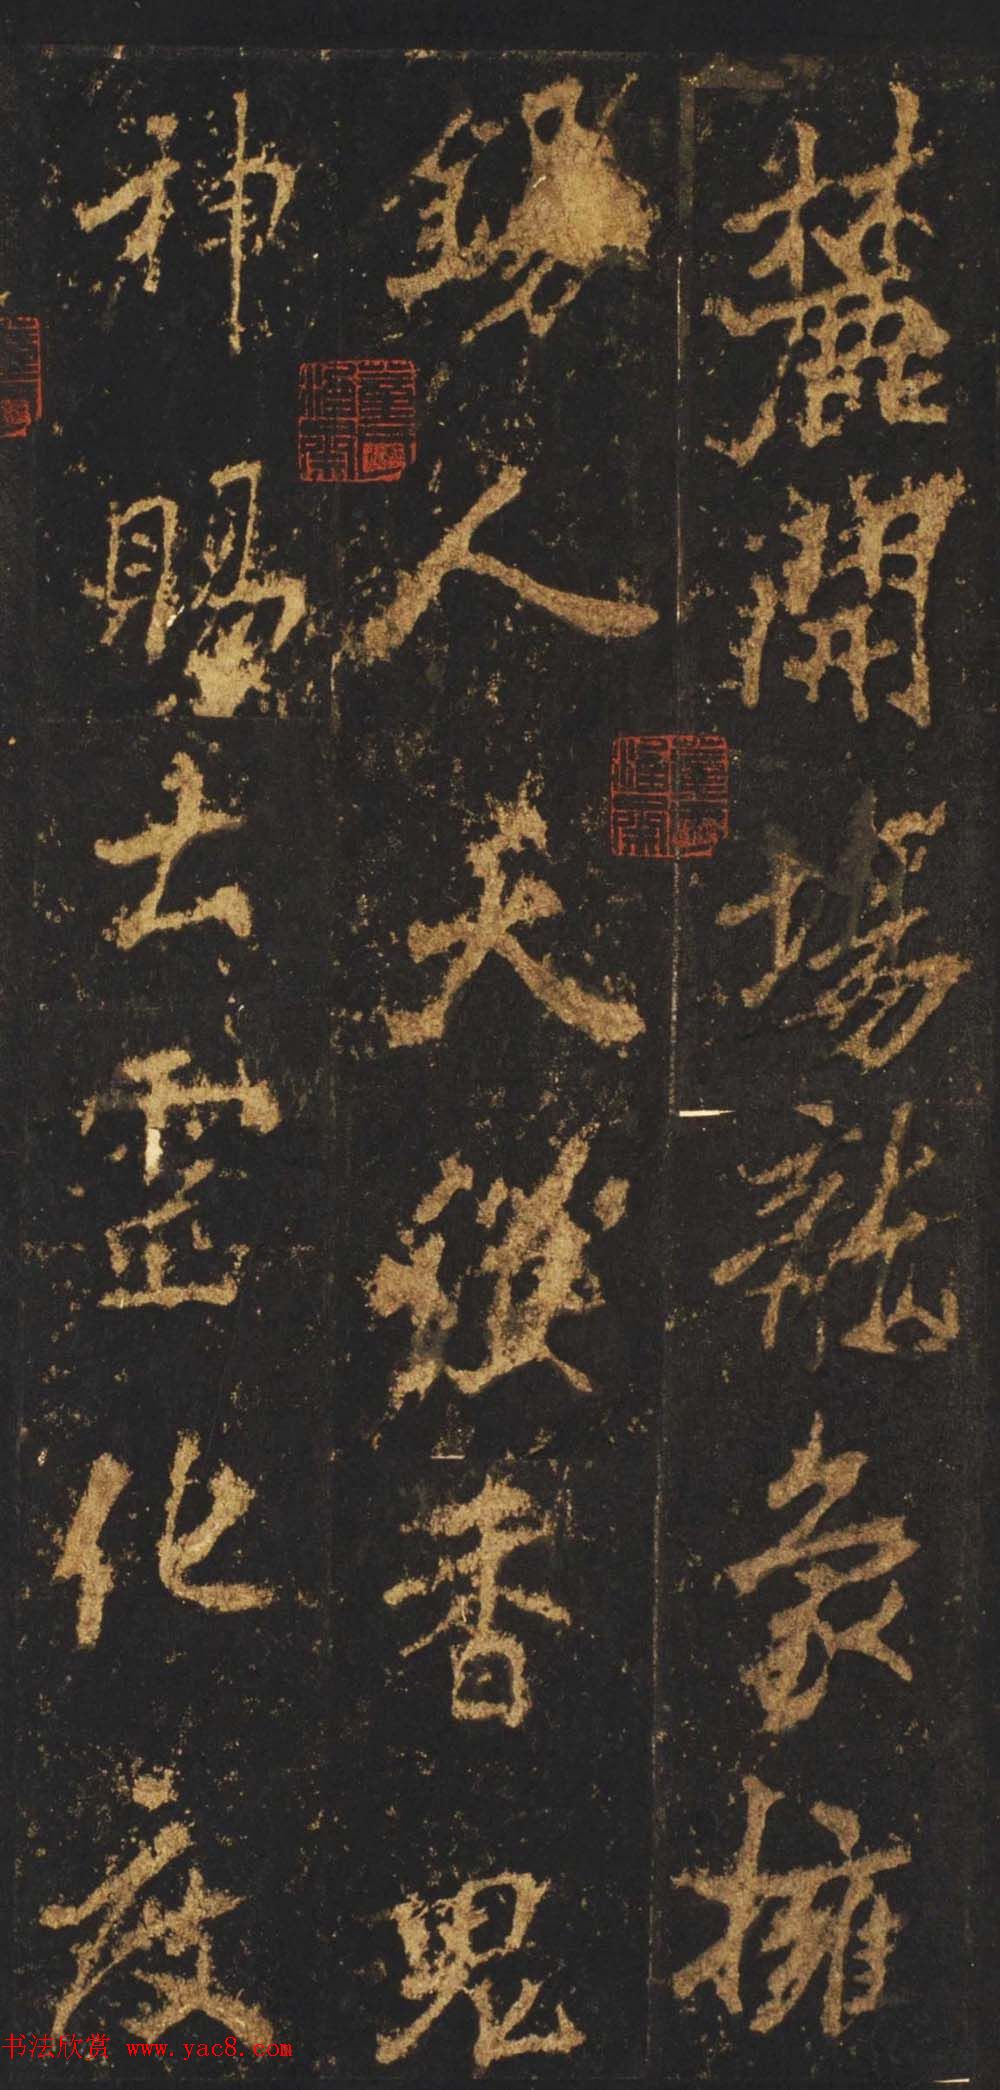 麓開場龍象擁
錫人天護香鬼
神賜去靈化度
书法欣赏 www.yac8.com